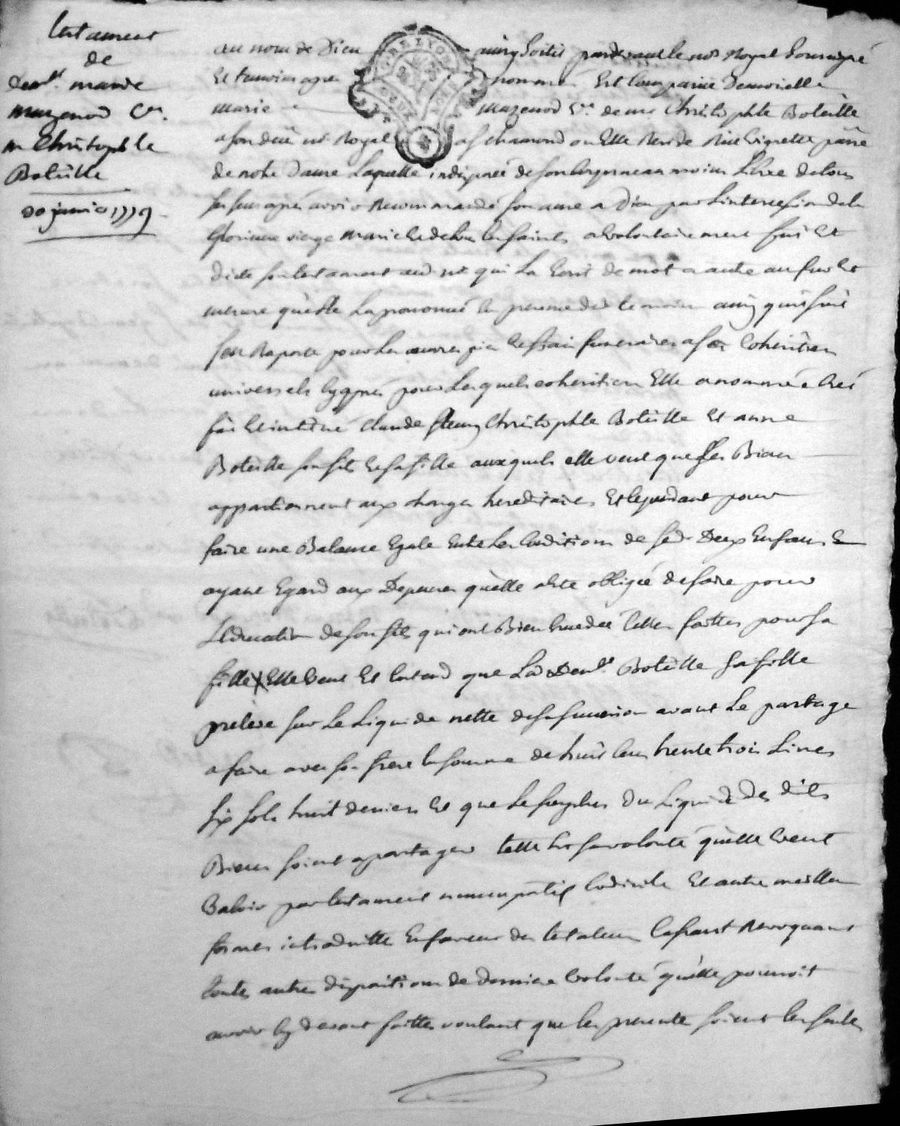 testament
de
Dem.lle marie
mazenod v.e
m Christophle
Boteille
20 juin 1779
au nom de Dieu ainsy soit il pardevant le no.re Royal soussigné
Et temoins apres nommés Est Comparüe Demoiselle
marie mazenod v.e de m.re Christophle Boteille
Royal a S.t chamond ou Elle Reside Rüe
de notre Dame Laquelle indisposée de son corps neanmoins Libre de tous
ses sens apres avoir Recommandé son ame a Dieu par Lintercession de la
Glorieuse vierge Marie Et de tous les saints a volontairement fait Et
Dicté son testament aud. no.re qui La Ecrit de mot a autre au fur Et
mesure quelle La prononcé En presence des temoins ainsy quil suit
s'en Raporte pour les oeuvres pies Et frais funeraires a ses Coheritiers
universels cy apres pour Lesquels coheritiers Elle a nommé Créé
fait Et institué Claude fleury Christophle Boteille Et anne
Boteille son fils Et sa fille auxquels elle veut que ses Biens
appartiennent aux charges hereditaires Et cependant pour
faire une Balance Egale Entre les Conditions de ses d. Deux Enfans Et
ayant Egard aux Depenses quelle a Eté obligée de faire pour
L'Education de son fils qui ont Bien Excedé Celles faittes pour sa
fille Elle veut Et Entend que La d. Dem.lle Boteille sa fille
preleve sur Le Liquide nette de sa succession avant Le partage
a faire avec son frere la somme de huit Cent trente trois Livres
six sols huit deniers Et que Le surplus Du Liquide Des dits
Biens soient a partager telle Est sa volonté quelle veut
Valoir par testament nuncupatif Codicile Et autre meilleure
forme introduitte En faveur des testateurs Cassant Revoquant
toutes autres dispositions de derniere volonté quelle pourroit
avoir cy devant faittes voulant que les presentes soient les seules